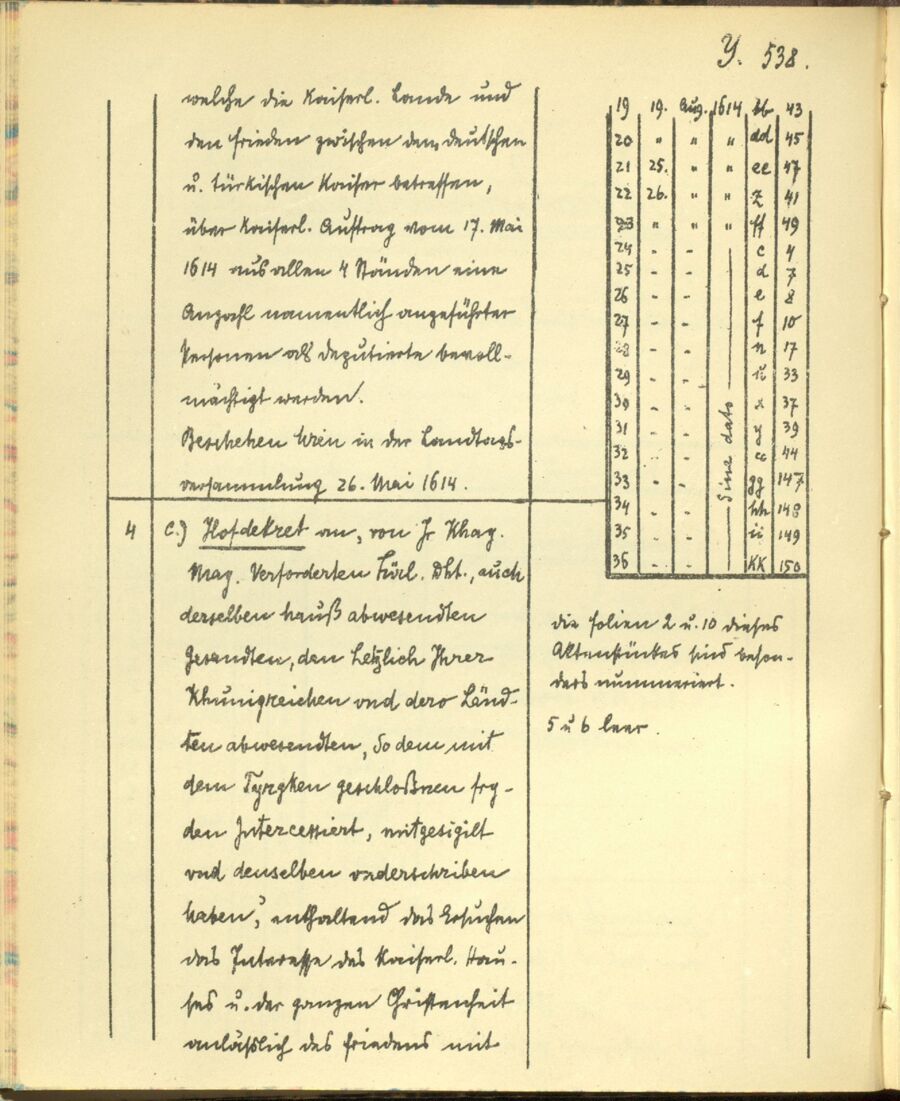 Y. 538.
welche die Kaiserl. Lande und
den Frieden zwischen dem deutschen
u. türkischen Kaiser betreffen,
über Kaiserl. Auftrag vom 17. Mai
1614 aus allen 4 Ständen eine
Anzahl namentlich angeführter
Personen als Deputierte bevoll-
mächtigt werden.
Beschehen Wien in der Landtags-
versammlung 26. Mai 1614.
4 c.) Hofdekret an „von Jr Khay.
May. Verforderten Fürl. Dht., auch
derselben hauß abwesendten
Gesandten, den Letzlich Ihrer
Khunigreichen vnd dero Länd-
ten abwesendten, So dem mit
dem Tyrgken geschloßnen fry-
den Intercessiert, mitgesigilt
vnd denselben vnderschriben
haben," enthaltend das Ersuchen
das Interesse des Kaiserl. Hau-
ses u. der ganzen Christenheit
anläßlich des Friedens mit
19 19. Aug. 1614 bb 43
20 " " " dd 45
21 25. " " ee 47
22 26. " " z 41
23 " " " ff 49
24 - - c 4
25 - - d 7
26 - - e 8
27 - - f 10
28 - - n 17
29 - - ü 33
30 - - x 37
31 - - y 39
32 - - cc 44
33 - - gg 147
34 - - hh 148
35 - - ii 149
36 - - KK 150
Sine dato
die Folien 2 u. 10 dieses
Aktenstückes sind beson-
ders nummeriert.
5 u 6 leer.